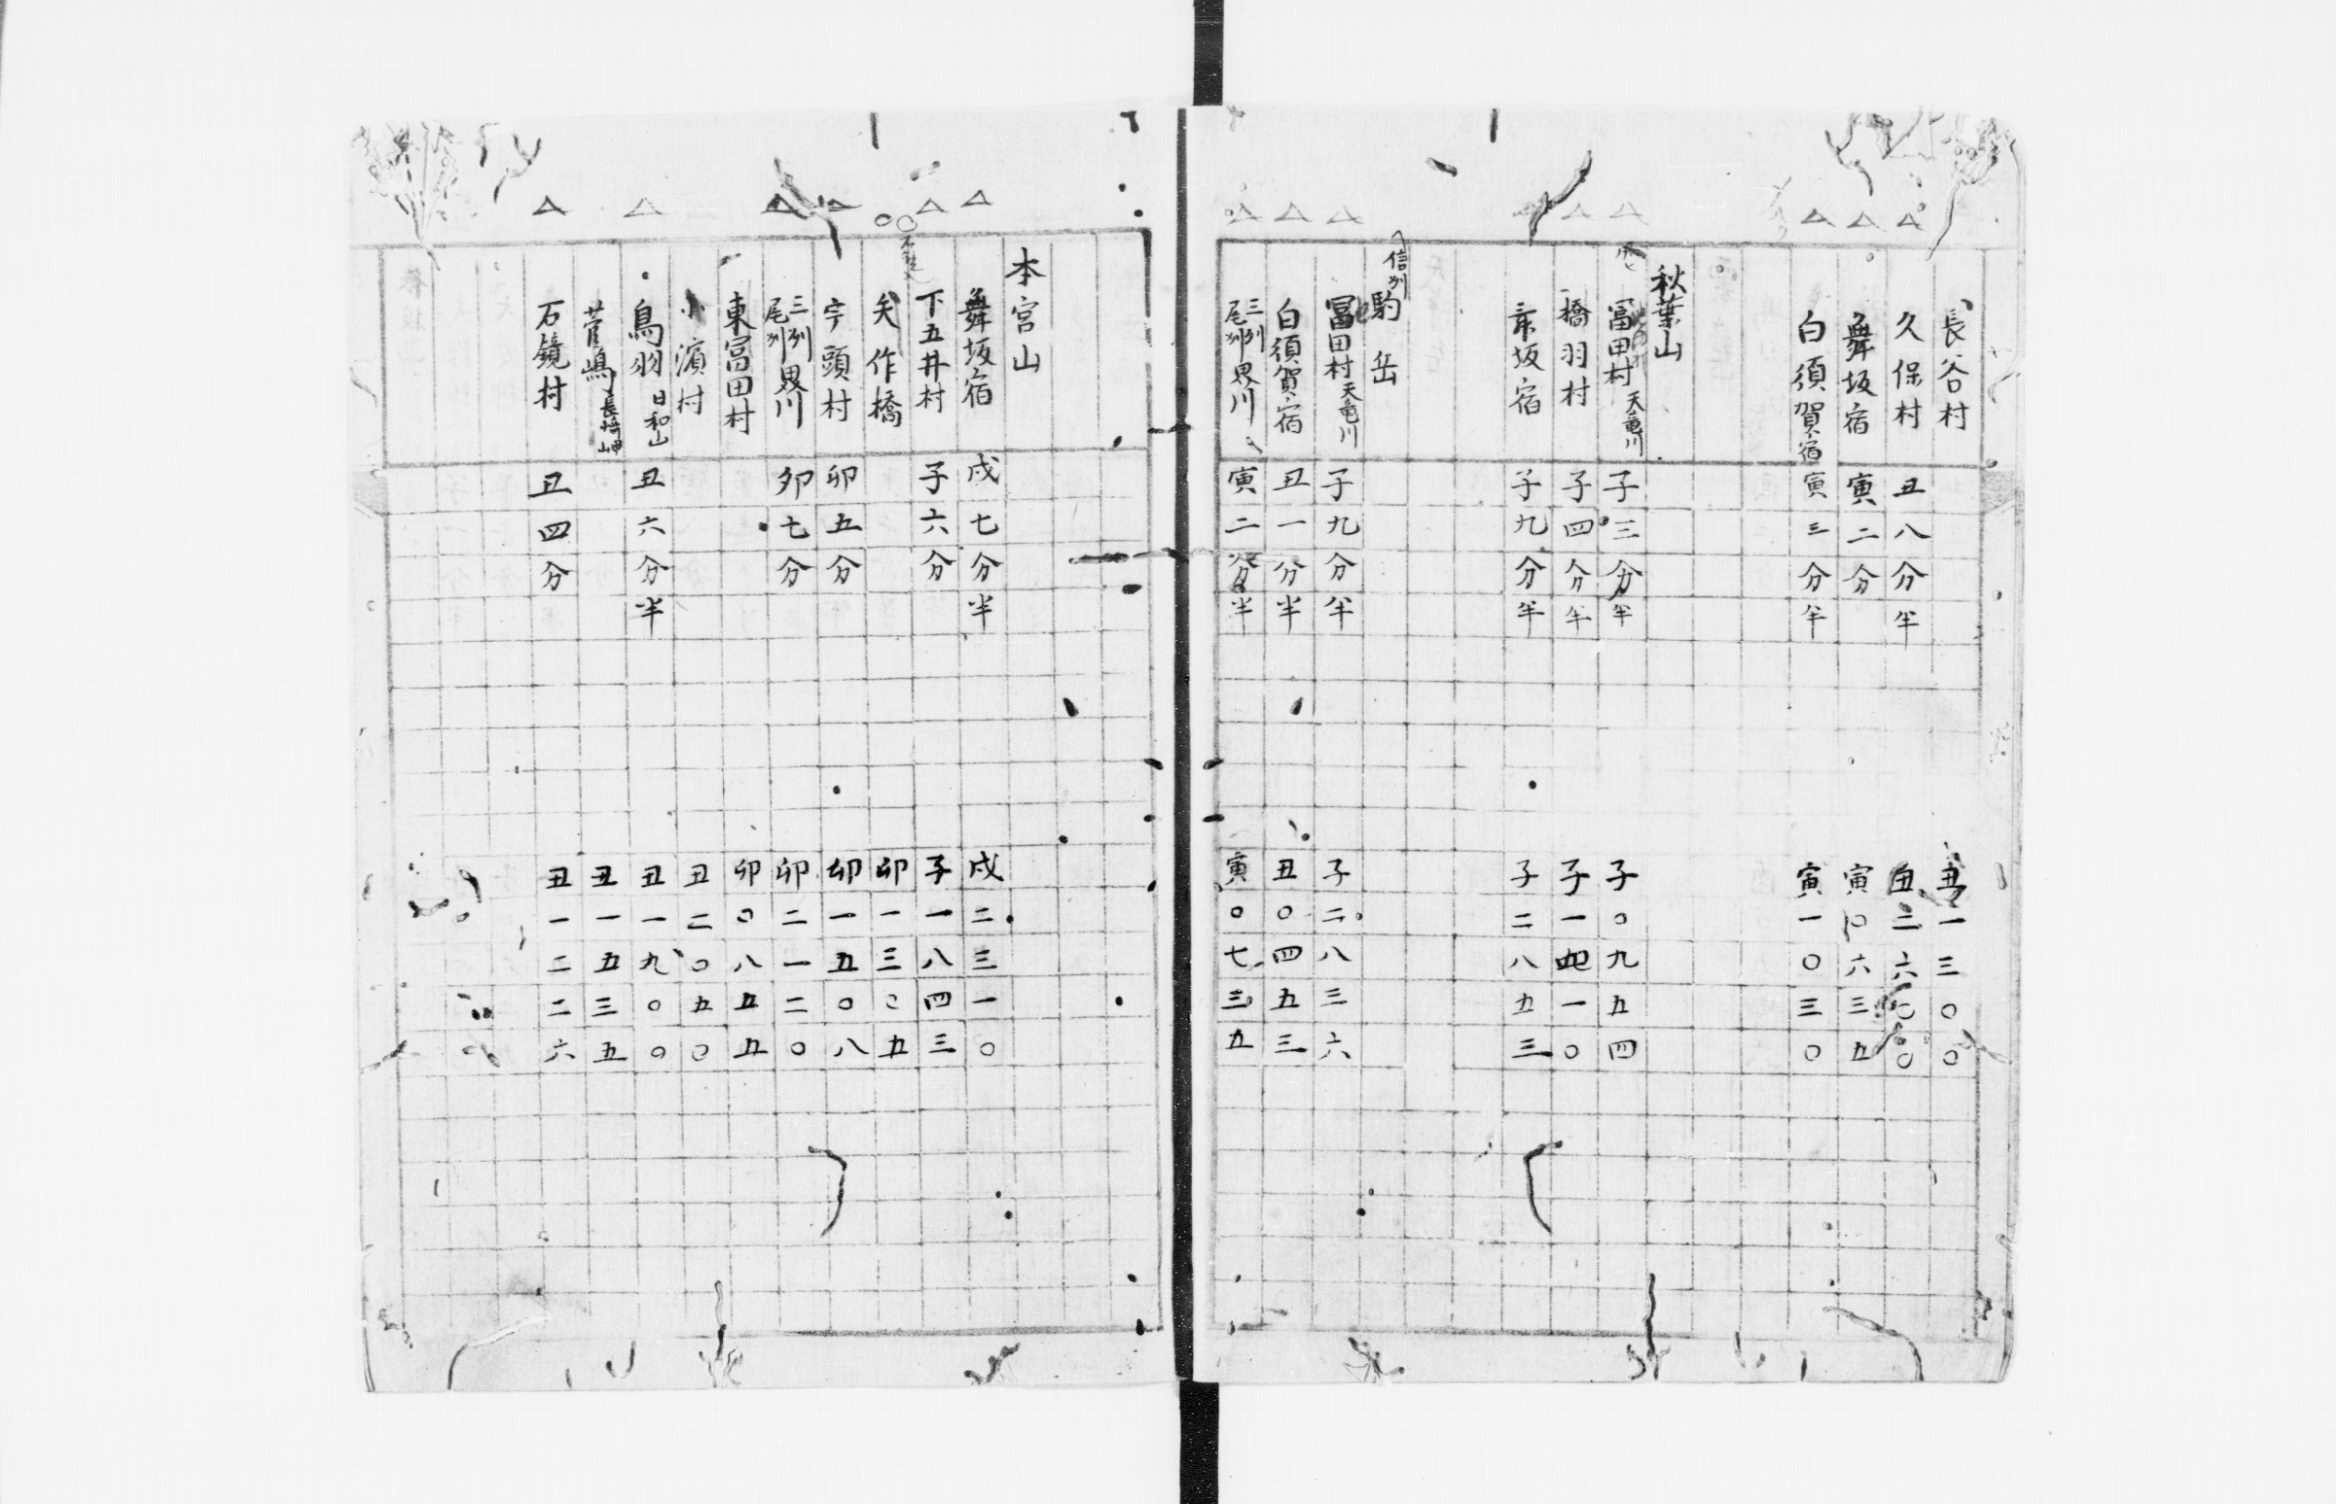 長谷村 丑一三〇〇
△ 久保村 丑八分半 丑二六〇〇
△ 舞坂宿 寅二分 寅〇六三五
△ 白須賀宿 寅三分半 寅一〇三〇
秋葉山
△ 冨田村 天竜川 子三分半 子〇九五四
△ 橋羽村 子四分半 子一四一〇
坂宿 子九分半 子二八五三
信州 駒岳
△ 冨田村 天竜川 子九分半 子二八三六
△ 白須賀宿 丑一分半 丑〇四五三
△ 三州尾州界川 寅二分半 寅〇七三五
本宮山
△ 舞坂宿 戌七分半 戌二三一〇
△ 下五井村 子六分 子一八四三
〇 矢作橋 卯一三〇五
△ 宇頭村 卯五分 卯一五〇八
△ 三州尾州界川 卯七分 卯二一二〇
東冨田村 卯〇八五五
小濱村 丑二〇五〇
△ 鳥羽 日和山 丑六分半 丑一九〇〇
菅嶋 長崎岬 丑一五三五
△ 石鏡村 丑四分 丑一二二六